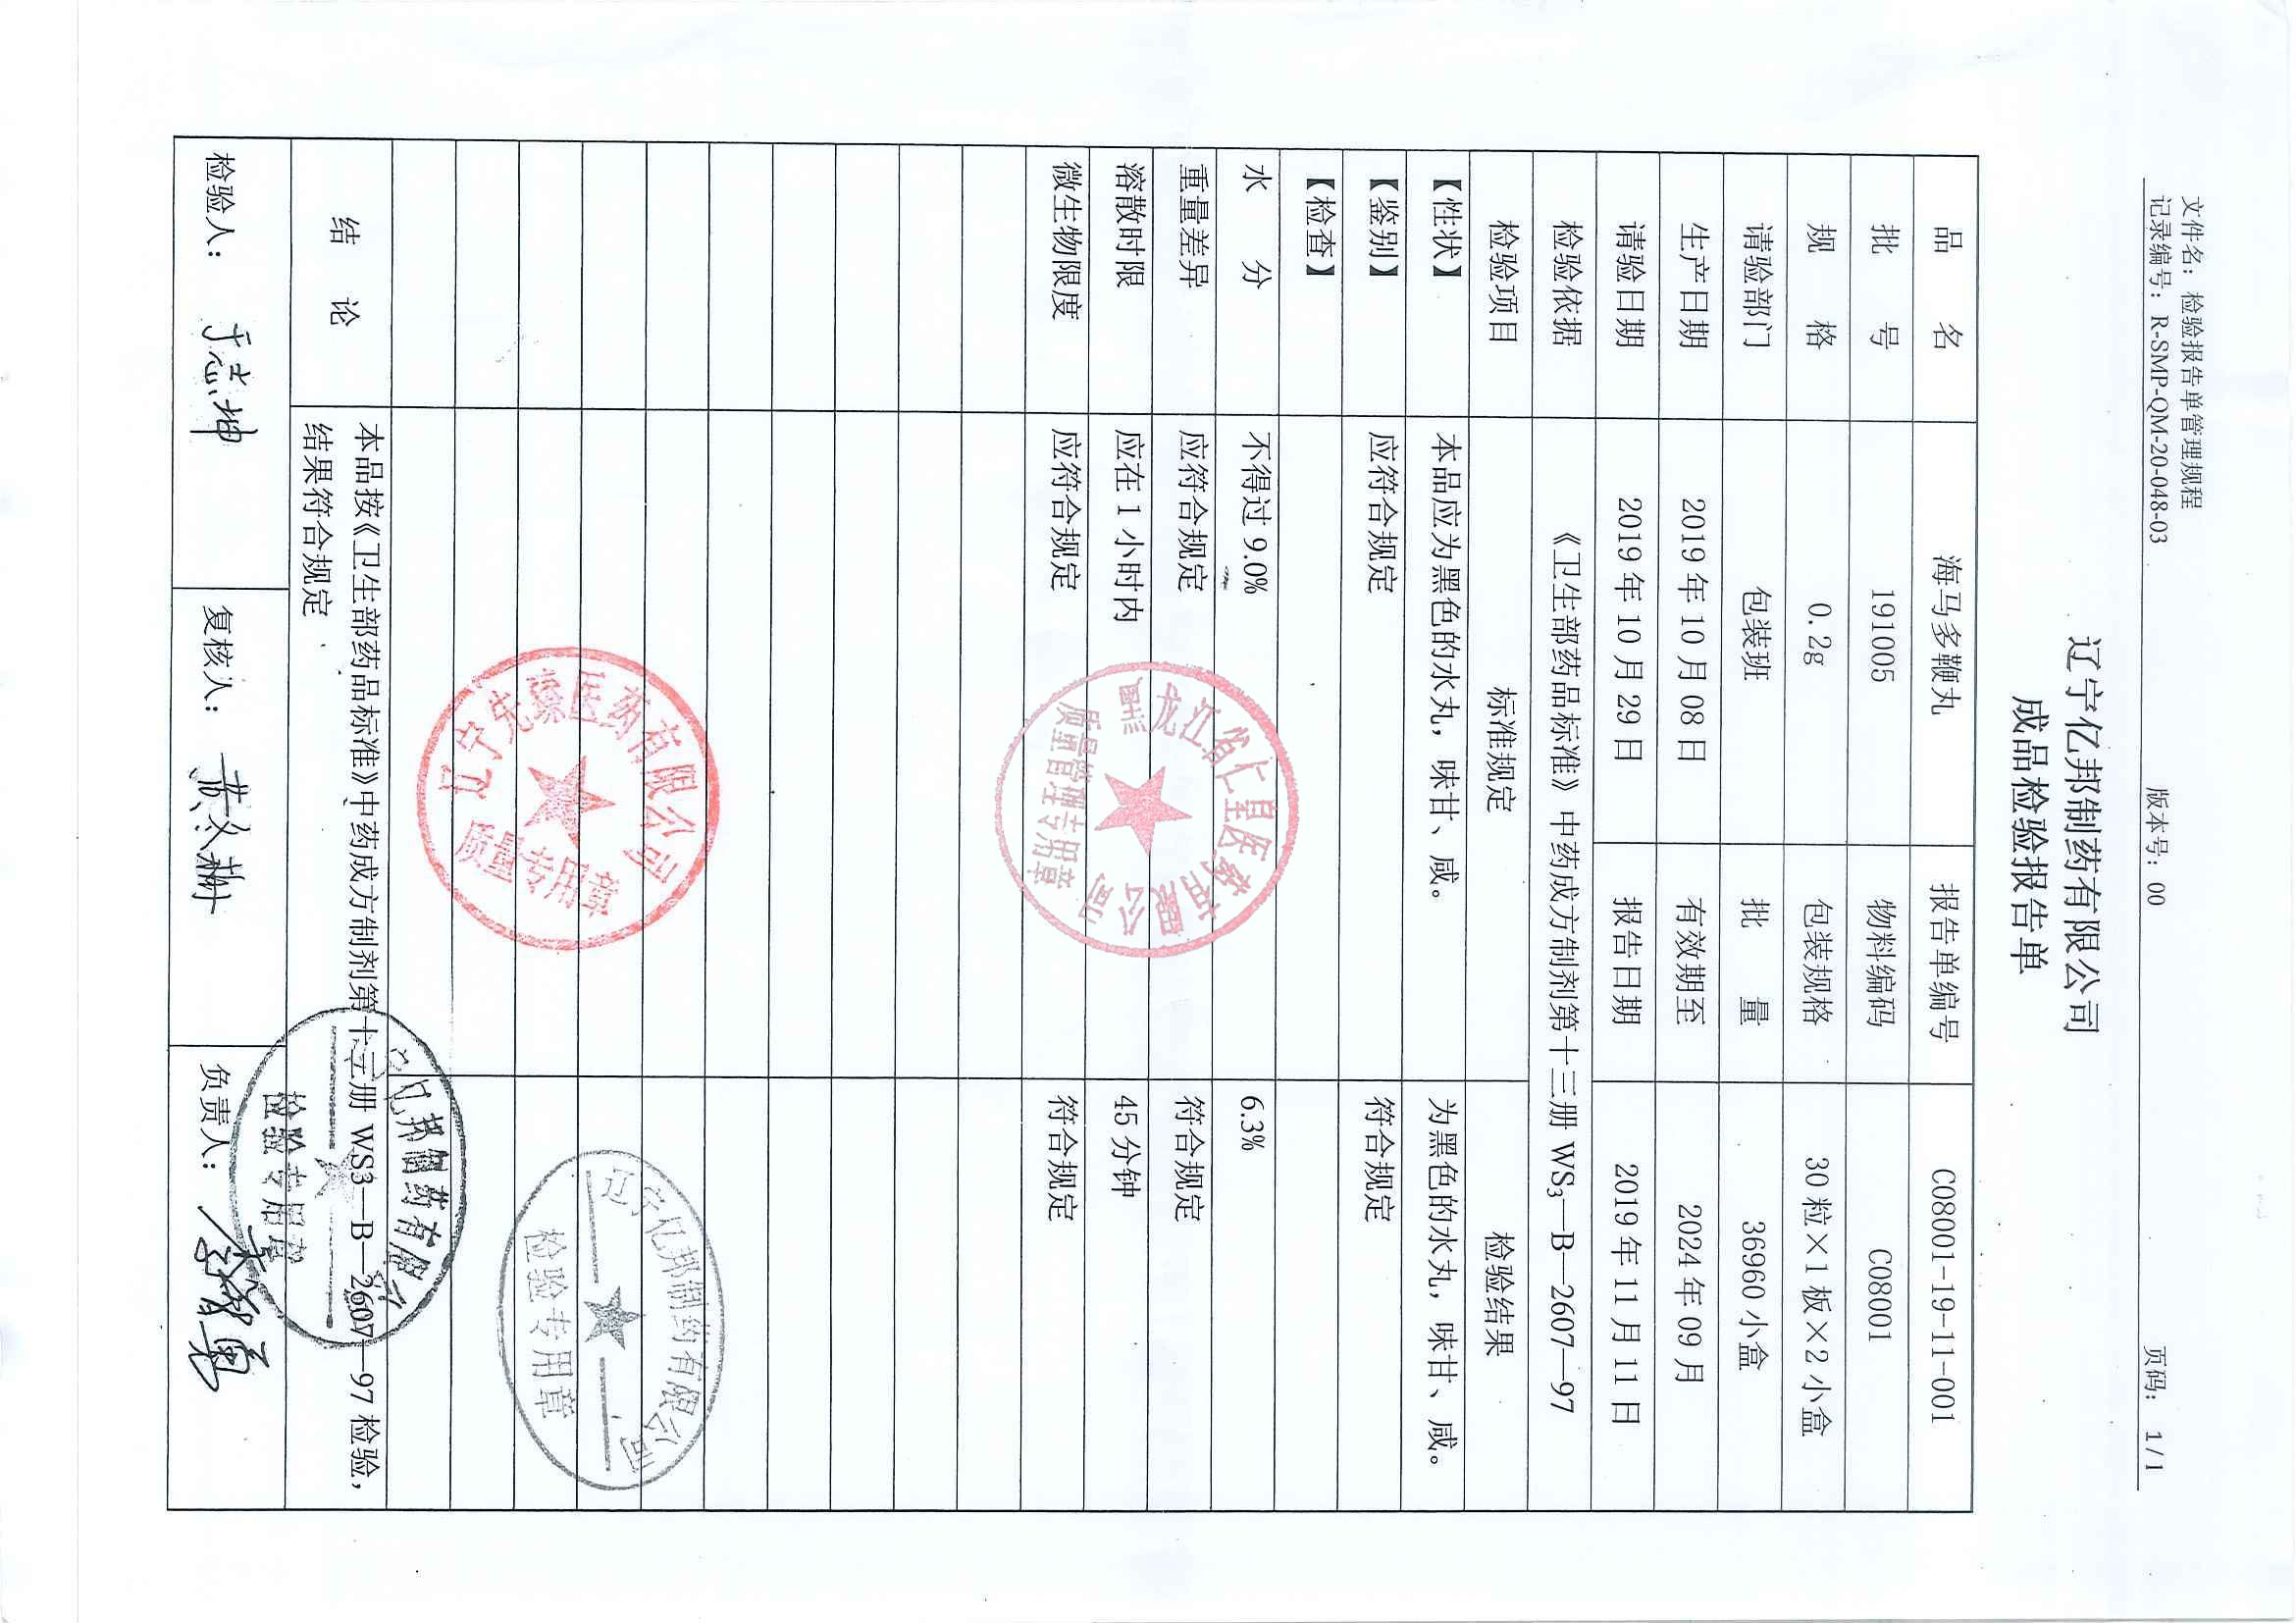 文件名：检验报告单管理规程
记录编号：R-SMP-QM-20-048-03 版本号：00 页码：1/1
辽宁亿邦制药有限公司
成品检验报告单
品 名 海马多鞭丸 报告单编号 C08001-19-11-001
批 号 191005 物料编码 C08001
规 格 0.2g 包装规格 30粒×1板×2小盒
请验部门 包装班 批 量 36960小盒
生产日期 2019年10月08日 有效期至 2024年09月
请验日期 2019年10月29日 报告日期 2019年11月11日
检验依据 《卫生部药品标准》中药成方制剂第十三册 WS₃—B—2607—97
检验项目 标准规定 检验结果
【性状】 本品应为黑色的水丸，味甘、咸。 为黑色的水丸，味甘、咸。
【鉴别】 应符合规定 符合规定
【检查】
水 分 不得过9.0% 6.3%
重量差异 应符合规定 符合规定
溶散时限 应在1小时内 45分钟
微生物限度 应符合规定 符合规定
黑龙江省仁皇医药有限公司
质量管理专用章
辽宁先臻医药有限公司
质量专用章
辽宁亿邦制药有限公司
检验专用章
结 论 本品按《卫生部药品标准》中药成方制剂第十三册 WS3—B—2607—97检验，
结果符合规定
亿邦制药有限公
检验专用章
检验人： 于志坤 复核人： 负责人：